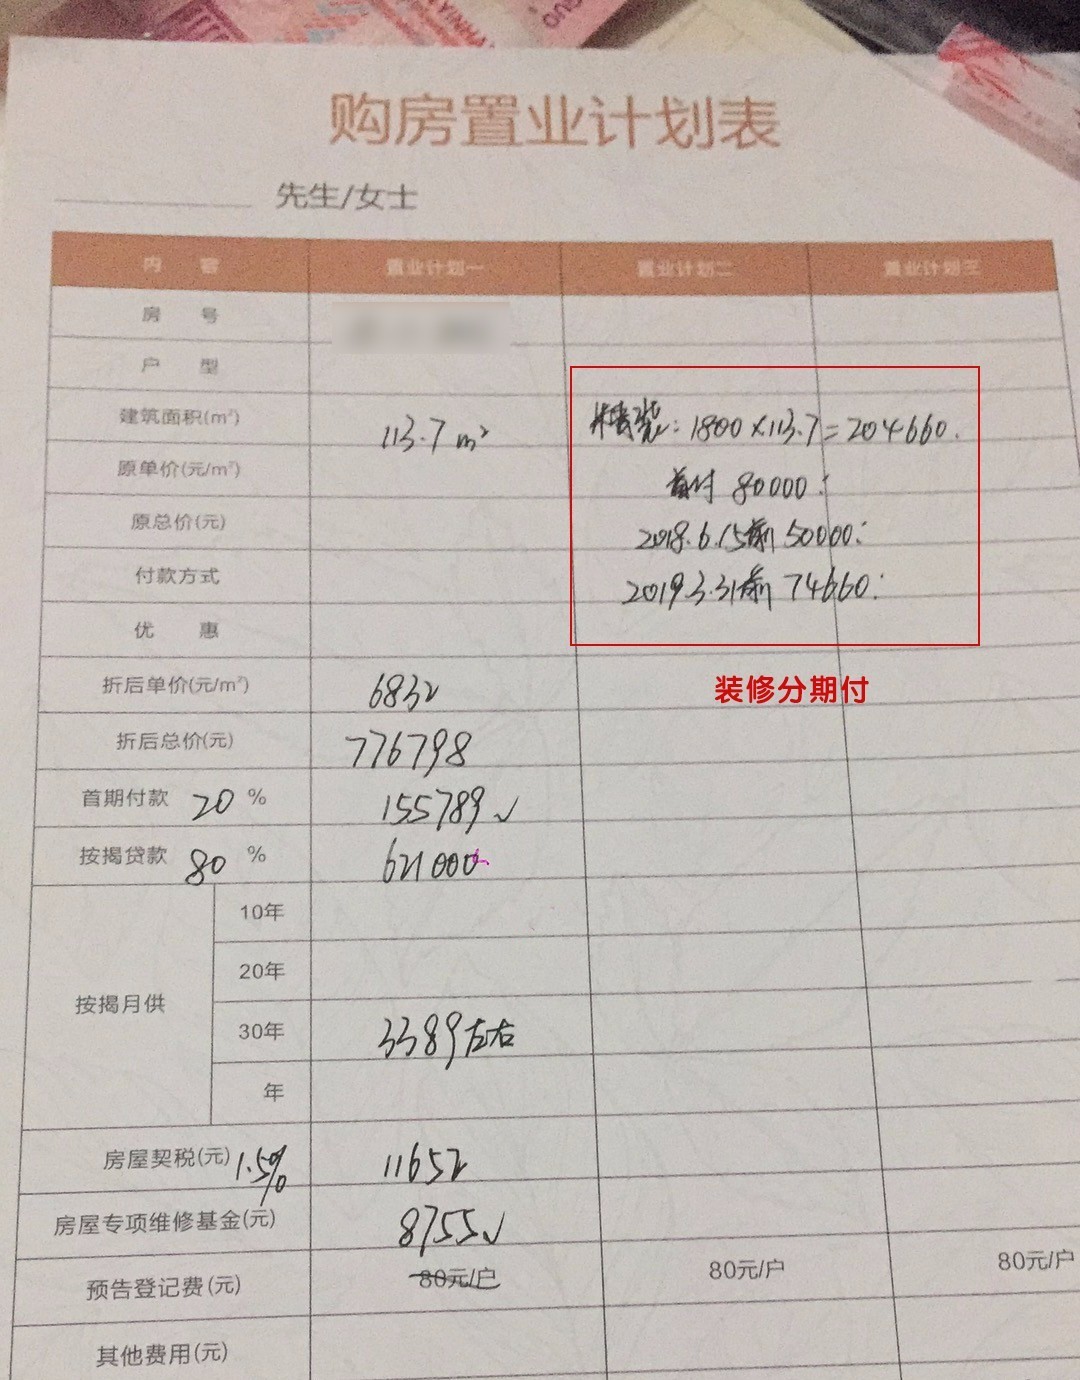 购房置业计划表
先生/女士
内 容 置业计划一 置业计划二 置业计划三
房 号
户 型
建筑面积(m²) 113.7 m² 精装: 1800×113.7=204660.
原单价(元/m²) 首付 80000:
原总价(元) 2018.6.15前 50000:
付款方式 2019.3.31前 74660:
优 惠
折后单价(元/m²) 6832 装修分期付
折后总价(元) 776798
首期付款 20 % 155789√
按揭贷款 80 % 621000
按揭月供
10年
20年
30年 3389左右
年
房屋契税(元) 1.5% 11652
房屋专项维修基金(元) 8755√
预告登记费(元) 80元/户 80元/户 80元/户
其他费用(元)